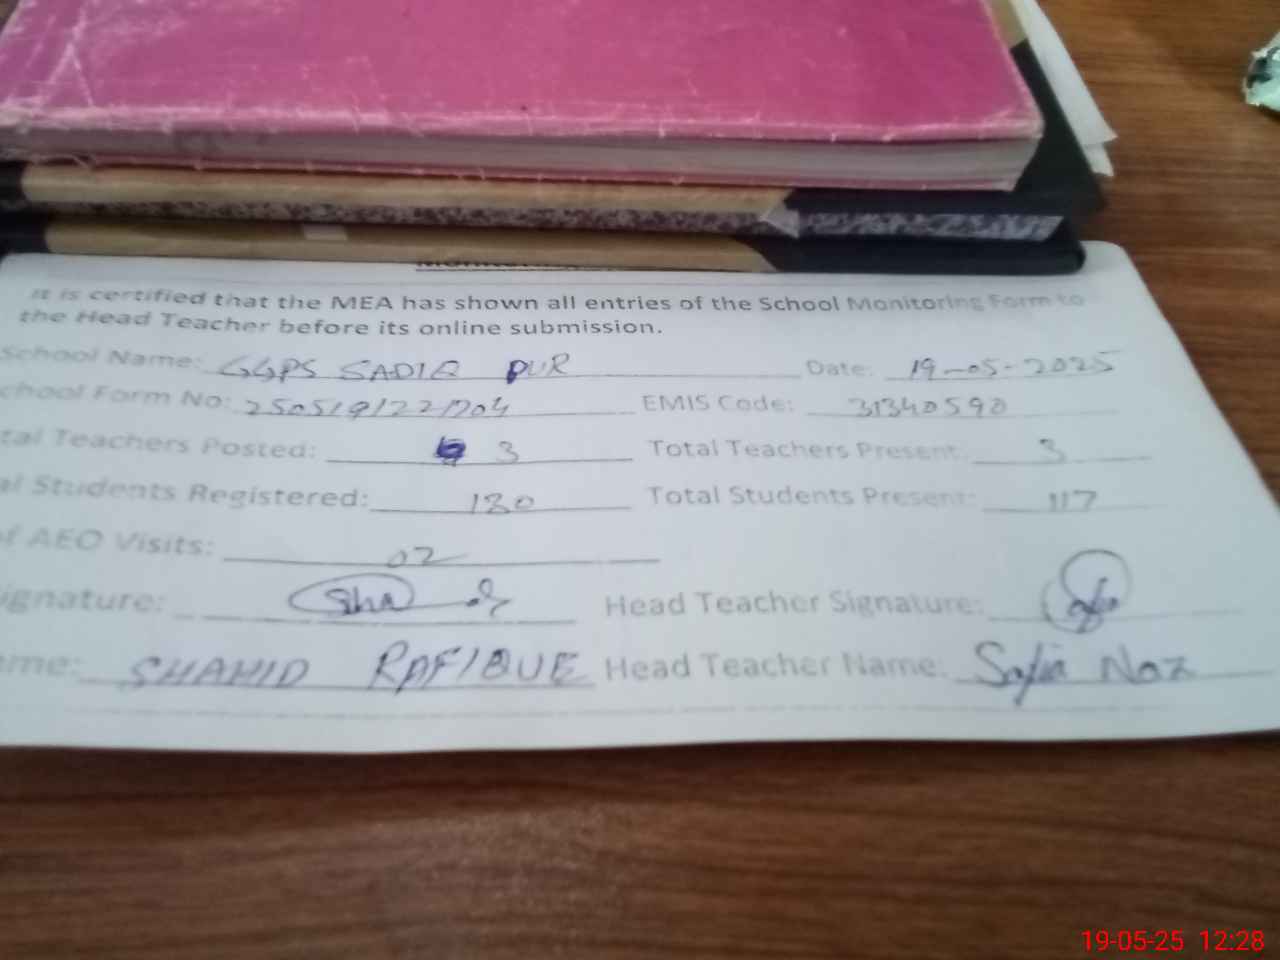 It is certified that the MEA has shown all entries of the School Monitoring Form to
the Head Teacher before its online submission.
School Name: GGPS SADIQ PUR Date: 19-05-2025
chool Form No: 2505191221204 EMIS Code: 31340590
tal Teachers Posted: 3 Total Teachers Present: 3
al Students Registered: 130 Total Students Present: 117
of AEO Visits: 02
ignature: Sha Head Teacher Signature:
me: SHAHID RAFIQUE Head Teacher Name: Safia Naz
19-05-25 12:28